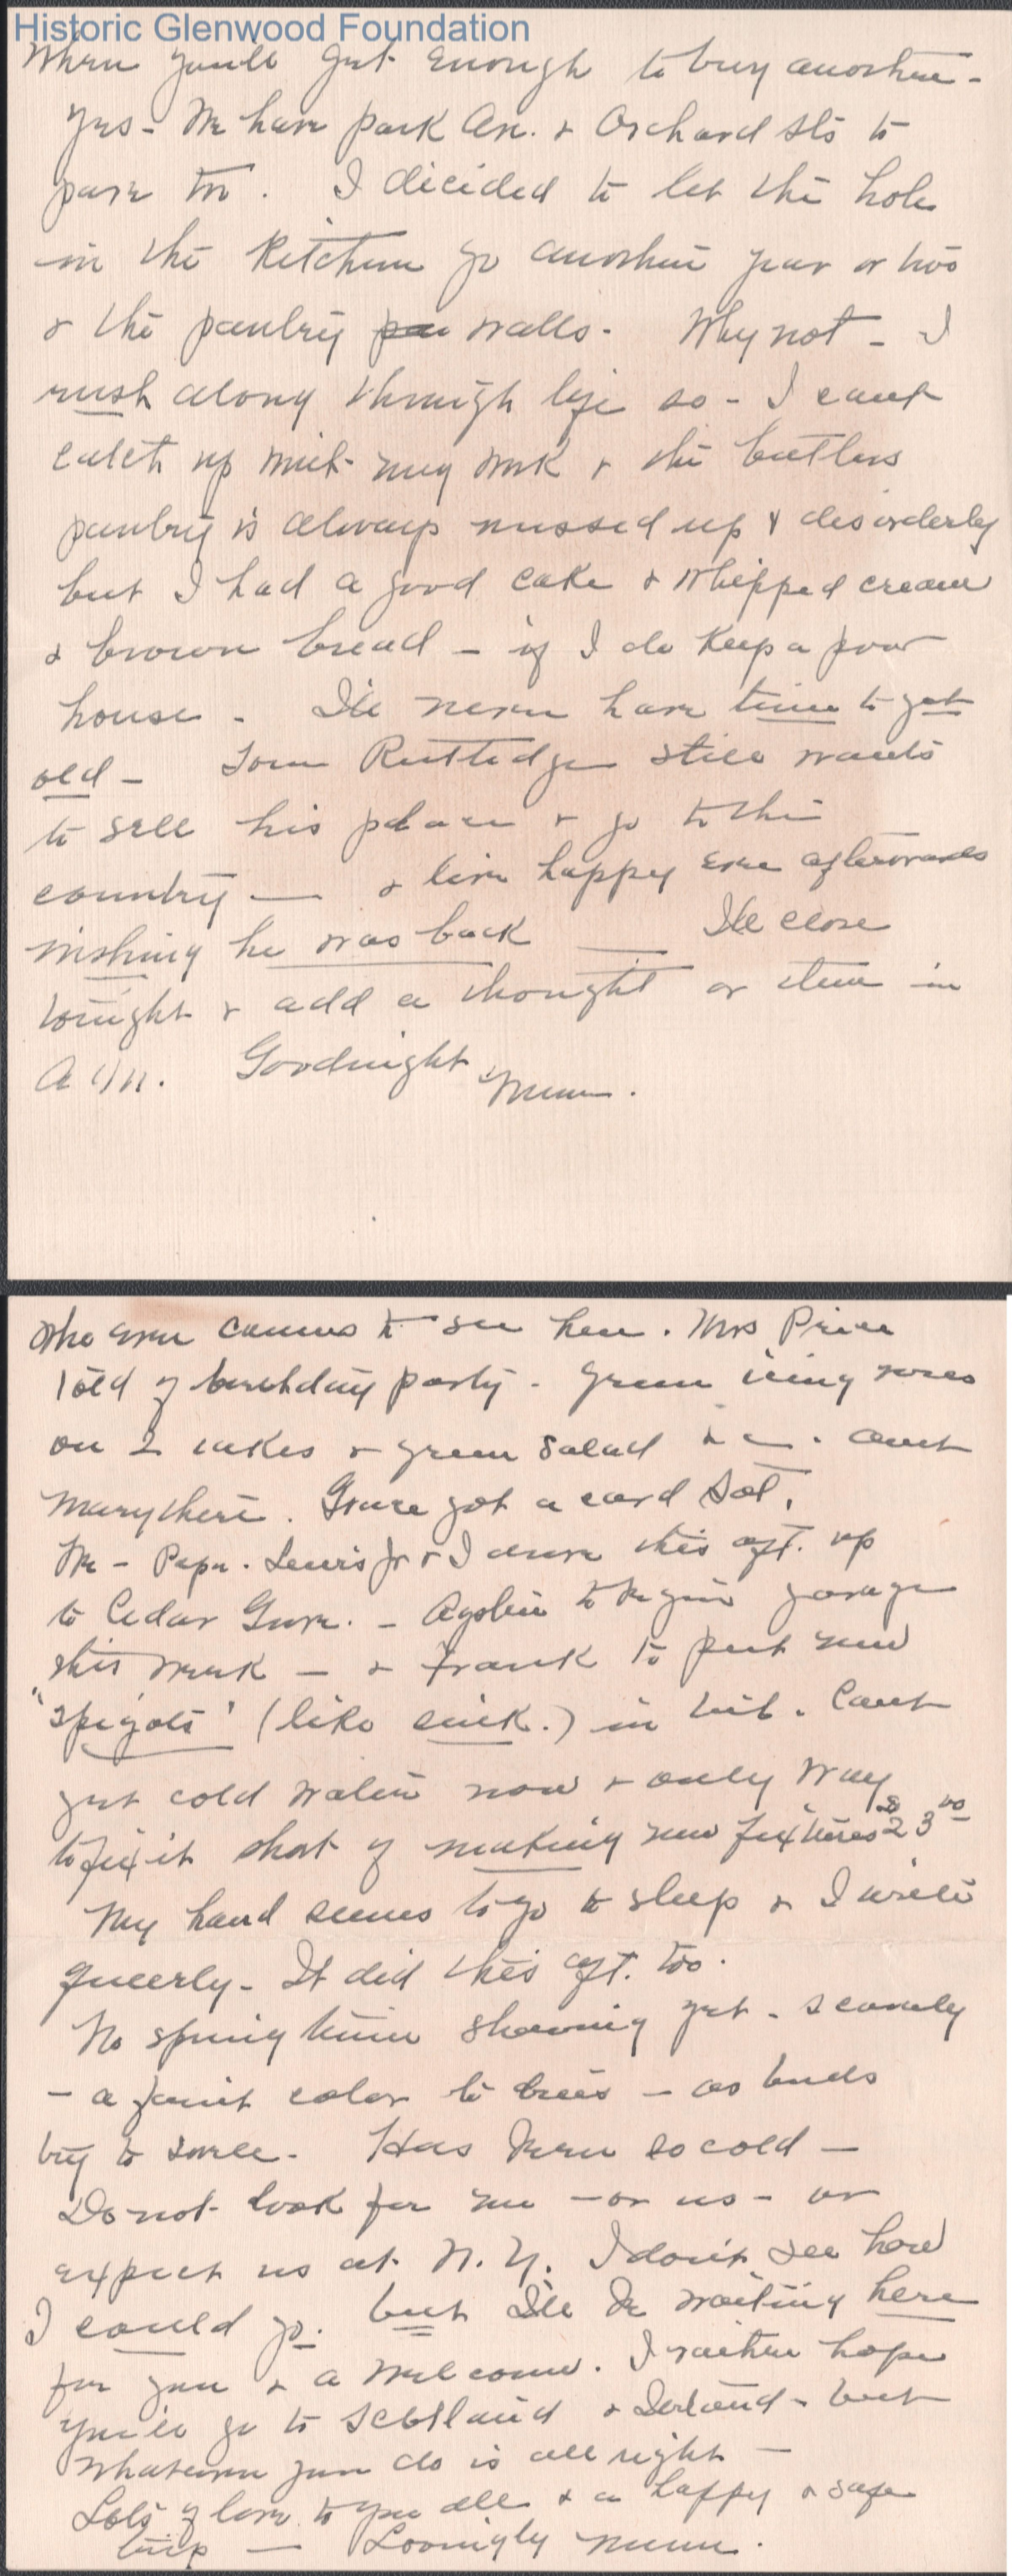 Historic Glenwood Foundation
When you'll get enough to buy another -
Yes - We have Park Av. & Orchard Sts to
pave too. I dicided to let the hole
in the Kitchen go another year or two
& the pantry pan walls. Why not - I
rush along through life so - I cant
catch up with my work & the butlers
pantry is always mussed up & disorderly
but I had a good cake & whipped cream
& brown bread - if I do Keep a poor
house - I'll never have time to get
old - Tom Ruttedge still wants
to sell his place & go to the
country — & live happy ever afterwards
wishing he was back — I'll close
tonight & add a thought or item in
A.M. Goodnight
Mum.
who ever comes to see her. Mrs Price
told of birthday party - Green icing roses
on 2 cakes & green salad &c. Aunt
Mary there. Grace got a card Sat.
We - Papa. Lewis Jr & I drove this aft. up
to Cedar Grove. - to begin garage
this week — & Frank to put new
'spigots' (like sink.) in tub. Cant
get cold water now & only way
to fix it short of making new fixtures 23 00
My hand seems to go to sleep & I write
queerly - It did this aft. too.
No spring time showing yet - scarcely
- a faint color to trees - as buds
try to swell - Has been so cold -
Do not look for me - or us - or
expect us at N.Y. I don't see how
I could go. but I'll be waiting here
for you & a welcome. I rather hope
you'll go to Scotland & Ireland - but
whatever you do is all right -
Lots of love to you all & a happy & safe
trip — Lovingly Mum.